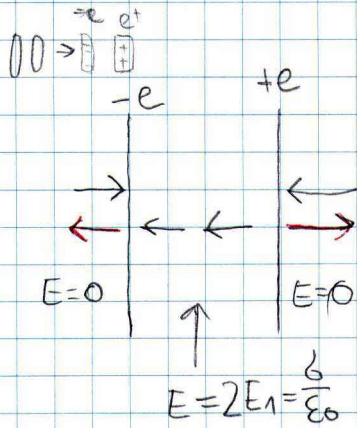 -e e+
-e +e
E=0 E=0
E=2E₁=б/ε₀